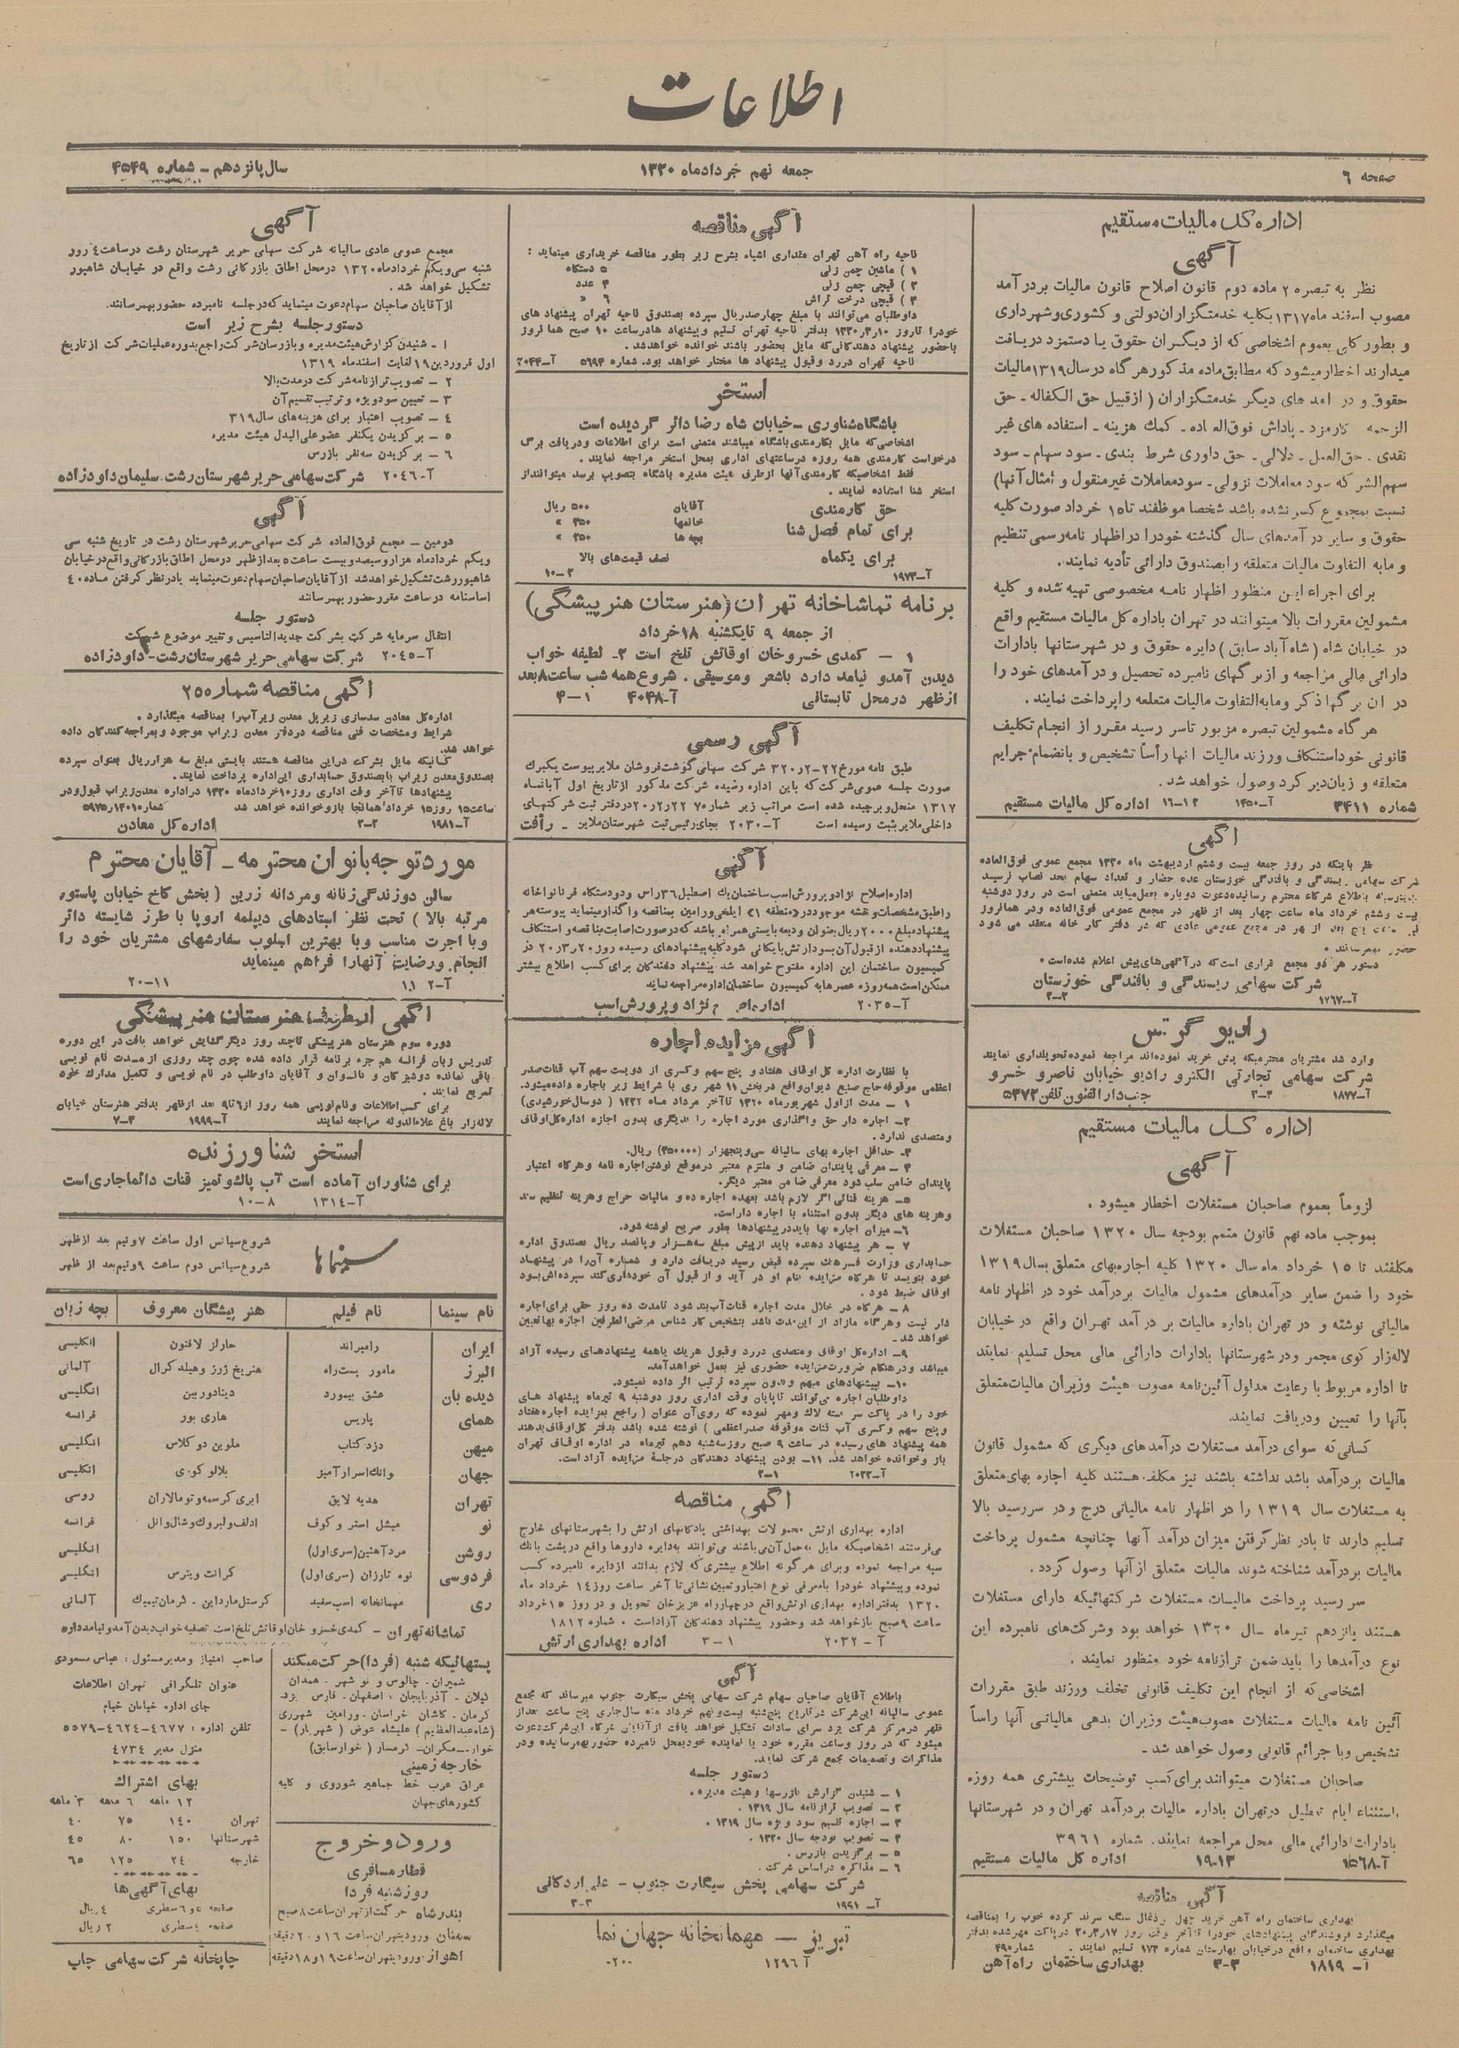 اطلاعات
صفحه ۶
جمعه نهم خردادماه ۱۳۲۰
سال پانزدهم – شماره ۴۵۴۹
اداره کل مالیات مستقیم
آگهی
نظر به تبصره ۲ ماده دوم قانون اصلاح قانون مالیات بردرآمد
مصوب اسفند ماه ۱۳۱۷ بکلیه خدمتگزاران دولتی و کشوری و شهرداری
و بطور کلی بعموم اشخاصی که از دیگران حقوق یا دستمزد دریافت
میدارند اخطار میشود که مطابق ماده مذکور هر گاه در سال ۱۳۱۹ مالیات
حقوق و در آمد های دیگر خدمتگزاران ( ازقبیل حق الکفاله ـ حق
الزحمه ـ کارمزد ـ پاداش فوق العاده ـ کمك هزینه ـ استفاده های غیر
نقدی ـ حق العمل ـ دلالی ـ حق داوری شرط بندی ـ سود سهام ـ سود
سهم الشرکه سود معاملات نزولی ـ سودمعاملات غیرمنقول و امثال آنها)
نسبت بمجموع کسر نشده باشد شخصا موظفند تا ۱۵ خرداد صورت کلیه
حقوق و سایر در آمدهای سال گذشته خودرا دراظهار نامه رسمی تنظیم
و مابه التفاوت مالیات متعلقه را بصندوق دارائی تأدیه نمایند.
برای اجراء این منظور اظهار نامه مخصوصی تهیه شده و کلیه
مشمولین مقررات بالا میتوانند در تهران باداره کل مالیات مستقیم واقع
در خیابان شاه (شاه آباد سابق) دایره حقوق و در شهرستانها بادارات
دارائی مالی مراجعه و ازبرگهای نامبرده تحصیل و درآمدهای خود را
در آن برگها ذکر و مابه التفاوت مالیات متعلقه را پرداخت نمایند.
هر گاه مشمولین تبصره مزبور تاسر رسید مقرر از انجام تکلیف
قانونی خوداستنکاف ورزند مالیات آنها رأساً تشخیص و بانضمام جرایم
متعلقه و زیان دیر کرد وصول خواهد شد.
شماره ۳۴۱۱ آ-۱۴۵۰ ۱۲-۱۶ اداره کل مالیات مستقیم
آگهی
نظر باینکه در روز جمعه بیست وششم اردیبهشت ماه ۱۳۲۰ مجمع عمومی فوق العاده
شرکت سهامی ریسندگی و بافندگی خوزستان عده حضار و تعداد سهام بحد نصاب نرسید
باطلاع شرکاء محترم رسانیده دعوت دوباره بعمل میاید متمنی است در روز دوشنبه
بیست وششم خرداد ماه ساعت چهار بعد از ظهر در مجمع عمومی فوق العاده ودر همانروز
پنج بعد از ظهر در مجمع عمومی عادی که در دفتر کار خانه منعقد می شود
حضور بهمرسانند .
دستور هر دو مجمع قراری است که در آگهی های پیش اعلام شده است .
شرکت سهامی ریسندگی و بافندگی خوزستان
آ-۱۷۶۷ ۳-۳
رادیو گرتس
وارد شد مشتریان محترمیکه پیش خرید نموده اند مراجعه نموده تحویلداری نمایند
شرکت سهامی تجارتی الکترو رادیو خیابان ناصرو خسرو
آ-۱۸۷۷ ۳-۳ جنب دارالفنون تلفن ۵۳۷۳
اداره کل مالیات مستقیم
آگهی
لزوماً بعموم صاحبان مستغلات اخطار میشود .
بموجب ماده نهم قانون متمم بودجه سال ۱۳۲۰ صاحبان مستغلات
مکلفند تا ۱۵ خرداد ماه سال ۱۳۲۰ کلیه اجاره بهای متعلق بسال ۱۳۱۹
خود را ضمن سایر درآمدهای مشمول مالیات بردرآمد خود در اظهار نامه
مالیاتی نوشته و در تهران باداره مالیات بر در آمد تهران واقع در خیابان
لاله زار کوی مجمر ودر شهرستانها بادارات دارائی مالی محل تسلیم نمایند
تا اداره مربوط با رعایت مدلول آئین نامه مصوب هیئت وزیران مالیات متعلق
بآنها را تعیین ودریافت نمایند.
کسانی که سوای درآمد مستغلات درآمدهای دیگری که مشمول قانون
مالیات بردرآمد باشد نداشته باشند نیز مکلف هستند کلیه اجاره بهای متعلق
به مستغلات سال ۱۳۱۹ را در اظهار نامه مالیاتی درج و در سررسید بالا
تسلیم دارند تا بادر نظر گرفتن میزان درآمد آنها چنانچه مشمول پرداخت
مالیات بردرآمد شناخته شوند مالیات متعلق از آنها وصول گردد .
سر رسید پرداخت مالیات مستغلات شرکتهائیکه دارای مستغلات
هستند پانزدهم تیرماه سال ۱۳۲۰ خواهد بود وشرکت های نامبرده این
نوع درآمدها را باید ضمن ترازنامه خود منظور نمایند .
اشخاصی که از انجام این تکلیف قانونی تخلف ورزند طبق مقررات
آئین نامه مالیات مستغلات مصوب هیئت وزیران بدهی مالیاتی آنها راساً
تشخیص وبا جرائم قانونی وصول خواهد شد .
صاحبان مستغلات میتوانند برای کسب توضیحات بیشتری همه روزه
باستثناء ایام تعطیل درتهران باداره مالیات بردرآمد تهران و در شهرستانها
بادارات دارائی مالی محل مراجعه نمایند. شماره ۳۹۶۱
آ-۱۵۶۸ ۱۳-۱۹ اداره کل مالیات مستقیم
آگهی مناقصه
بهداری ساختمان راه آهن خرید چهل تن ذغال سنگ سرند کرده خوب را بمناقصه
میگذارد فروشندگان پیشنهادهای خودرا تا آخر وقت روز ۲۰٫۳٫۱۷ درپاکت مهرشده بدفتر
بهداری ساختمان واقع درخیابان بهارستان شماره ۱۷۳ تسلیم نمایند . شماره ۴۹۰
آ- ۱۸۱۹ ۳-۳ بهداری ساختمان راه آهن
آگهی مناقصه
ناحیه راه آهن تهران مقداری اشیاء بشرح زیر بطور مناقصه خریداری مینماید :
۱ ) ماشین چمن زنی ۵ دستگاه
۲ ) قیچی چمن زنی ۴ عدد
۳ ) قیچی درخت تراش ۶ »
داوطلبان می‌توانند با مبلغ چهارصدریال سپرده بصندوق ناحیه تهران پیشنهاد های
خودرا تاروز ۱۳۲۰٫۳٫۱۰ بدفتر ناحیه تهران تسلیم و پیشنهاد هادرساعت ۱۰ صبح همانروز
باحضور پیشنهاد دهندگانی که مایل بحضور باشند خوانده خواهدشد.
ناحیه تهران دررد وقبول پیشنهاد ها مختار خواهد بود. شماره ۵۶۹۴ آ-۲۰۴۴
استخر
باشگاه شناوری – خیابان شاه رضا دائر گردیده است
اشخاصی که مایل بکارمندی باشگاه میباشند متمنی است برای اطلاعات ودریافت برگ
درخواست کارمندی همه روزه درساعتهای اداری بمحل استخر مراجعه نمایند .
فقط اشخاصیکه کارمندی آنها ازطرف هیئت مدیره باشگاه بتصویب برسد میتوانند از
استخر شنا استفاده نمایند .
حق کارمندی آقایان ۵۰۰ ریال
برای تمام فصل شنا خانمها ۳۵۰ »
بچه ها ۲۵۰ »
برای یکماه نصف قیمت های بالا
آ-۱۹۷۳ ۲-۱۰
برنامه تماشاخانه تهران (هنرستان هنرپیشگی)
از جمعه ۹ تا یکشنبه ۱۸ خرداد
۱ – کمدی خسروخان اوقاتش تلخ است ۲- لطیفه خواب
دیدن آمدو نیامد دارد باشعر وموسیقی. شروع همه شب ساعت ۸ بعد
ازظهر درمحل تابستانی آ-۴۰۴۸ ۱-۴
آگهی رسمی
طبق نامه مورخ ۲۲-۲-۳۲۰ شرکت سهامی گوشت فروشان ملایر بپیوست یکبرگ
صورت جلسه عمومی شرکت که باین اداره رسیده شرکت مذکور از تاریخ اول آبانماه
۱۳۱۷ منحل وبرچیده شده است مراتب زیر شماره ۷۰ ۲۰٫۲٫۲۲ دردفتر ثبت شرکتهای
داخلی ملایر بثبت رسیده است آ-۲۰۳۰ بجای رئیس ثبت شهرستان ملایر ـ رأفت
آگهی
اداره اصلاح نژاد و پرورش اسب ساختمان یك اصطبل ۳۶ راس و دو دستگاه قرنانواخانه
را طبق مشخصات و نقشه موجود در (منطقه ۱) ایلخی ورامین بمناقصه واگذار مینماید پیوسته هر
پیشنهاد مبلغ ۲۰۰۰ ریال بعنوان ودیعه بایستی همراه باشد که درصورت اصابت مناقصه و استنکاف
پیشنهاد دهنده از قبول آن بسود ارتش بایگانی شود کلیه پیشنهادهای رسیده روز ۲۰٫۳٫۲۰ در
کمیسیون ساختمان این اداره مفتوح خواهد شد پیشنهاد دهندگان برای کسب اطلاع بیشتر
ممکن است همه روزه عصرها به کمیسیون ساختمان اداره مراجعه نماید
آ-۲۰۳۵ اداره نژاد و پرورش اسب
آگهی مزایده اجاره
با نظارت اداره کل اوقافی هفتاد و پنج سهم وکسری از دویست سهم آب قنات صدر
اعظمی موقوفه حاج صنیع دیوان واقع دربخش ۱۱ شهر ری با شرایط زیر باجاره داده میشود.
۱ – مدت ازاول شهریورماه ۱۳۲۰ تا آخر مرداد مـاه ۱۳۲۲ ( دوسال خورشیدی)
۲ــ اجاره دار حق واگذاری مورد اجاره را بدیگری بدون اجازه اداره کل اوقاف
ومتصدی ندارد .
۳ـ حداقل اجاره بهای سالیانه سی وپنجهزار (۳۵۰۰۰) ریال.
۴ – معرفی پایندان ضامن و ملتزم معتبر درموقع نوشتن اجاره نامه وهرگاه اعتبار
پایندان ضامن سلب شود معرفی ضامن معتبر دیگر.
۵ـ هزینه قنائی اگر لازم باشد بعهده اجاره ده و مالیات حراج وهزینه تنظیم سند
وهزینه های دیگر بدون استثناء با اجاره داراست.
۶ــ میزان اجاره بها باید در پیشنهادها بطور صریح نوشته شود.
۷ – هر پیشنهاد دهنده باید ازپیش مبلغ سه هزار وپانصد ریال بصندوق اداره
حسابداری وزارت فـرهنك سپرده قبض رسید دریافت دارد و شماره آن را در پیشنهاد
خود بنویسد تا هرگاه مزایده بنام او در آید و از قبول آن خودداری کند سپرده اش بسود
اوقافی ضبط شود .
۸ – هرگاه در خلال مدت اجاره قنات آب بند شود تامدت ده روز حقی برای اجاره
دار نیست وهرگاه مازاد از این مدت باشد بتشخیص کار شناس مرضی الطرفین اجاره بها تعیین
خواهد شد .
۹– اداره کل اوقافی ومتصدی دررد وقبول هریك یاهمه پیشنهادهای رسیده آزاد
میباشد ودرهنگام ضرورت مزایده حضوری نیز بعمل خواهد آمد.
۱۰– بپیشنهادهای مبهم وبدون سپرده ترتیب اثر داده نمیشود.
داوطلبان اجاره می‌توانند تاپایان وقت اداری روز دوشنبه ۹ تیرماه پیشنهاد هـای
خود را در پاکت سر بسته لاك ومهر نموده که روی آن عنوان ( راجع بمزایده اجاره هفتاد
وپنج سهم وکسری آب قنات موقوفه صدراعظمی ) نوشته شده باشد بدفتر کل اوقاف بدهند
همه پیشنهاد های رسیده در ساعت ۹ صبح روزسه شنبه دهم تیرماه در اداره اوقاف تهران
باز وخوانده خواهد شد. ۱۱– بودن پیشنهاد دهندگان درجلسه مزایده آزاد است.
آ-۲۰۳۳ ۱-۲
آگهی مناقصه
اداره بهداری ارتش محمولات بهداشتی پادگانهای ارتش را بشهرستانهای خارج
می فرستند اشخاصیکه مایل به حمل آن می باشند می‌توانند به دایره داروها واقع درپشت بانك
سپه مراجعه نموده وبرای هرگونه اطلاع بیشتری که لازم بدانند ازدایره نامبرده کسب
نموده وپیشنهاد خودرا بامعرفی نوع اعتبار وتعیین نشانی تا آخر ساعت روز ۱۴ خرداد ماه
۱۳۲۰ بدفتر اداره بهداری ارتش واقع در چهارراه عزیزخان تحویل و در روز ۱۵ خرداد
ساعت ۹ صبح باز خواهد شد وحضور پیشنهاد دهندگان آزاد است . شماره ۱۸۱۲
آ - ۲۰۳۲ ۱-۳ اداره بهداری ارتش
آگهی
باطلاع آقایان صاحبان سهام شرکت سهامی پخش سیگارت جنوب میرساند که مجمع
عمومی سالیانه این شرکت درتاریخ پنج شنبه بیست و نهم خرداد ماه سال جاری پنج ساعت بعداز
ظهر درمرکز شرکت یزد سرای سادات تشکیل خواهد یافت از آقایان شرکاء این شرکت دعوت
میشود که در روز وساعت مقرره خود یا نماینده خود بمحل نامبرده حضور بهمرسانیده ودر
مذاکرات وتصمیمات مجمع شرکت نمایند.
دستور جلسه
۱ – شنیدن گزارش بازرسها وهیئت مدیره.
۲ – تصویب ترازنامه سال ۱۳۱۹ .
۳ – اجازه تقسیم سود ویژه سال ۱۳۱۹ .
۴ – تصویب بودجه سال ۱۳۲۰ .
۵ – برگزیدن بازرس .
۶ – مذاکره دراساس شرکت .
شرکت سهامی پخش سیگارت جنوب – علی اردکانی
آ- ۱۹۹۱ ۲-۳
تبریز – مهمانخانه جهان نما
آ ۱۲۹۶ ۲۰۰-
آگهی
مجمع عمومی عادی سالیانه شرکت سهامی حریر شهرستان رشت درساعت ۴ روز
شنبه سی ویکم خردادماه ۱۳۲۰ درمحل اطاق بازرگانی رشت واقع در خیابان شاهپور
تشکیل خواهد شد .
ازآقایان صاحبان سهام دعوت مینماید که درجلسه نامبرده حضور بهمرسانند.
دستور جلسه بشرح زیر است
۱ – شنیدن گزارش هیئت مدیره و بازرسان شرکت راجع بدوره عملیات شرکت از تاریخ
اول فروردین ۱۹ لغایت اسفندماه ۱۳۱۹
۲ – تصویب ترازنامه شرکت درمدت بالا
۳ – تعیین سود ویژه و ترتیب تقسیم آن
۴ – تصویب اعتبار برای هزینه های سال ۳۱۹
۵ – برگزیدن یکنفر عضو علی البدل هیئت مدیره
۶ – برگزیدن سه نفر بازرس
آ-۲۰۴۶ شرکت سهامی حریر شهرستان رشت سلیمان داودزاده
آگهی
دومین – مجمع فوق العاده شرکت سهامی حریر شهرستان رشت در تاریخ شنبه سی
ویکم خردادماه هزار و سیصد و بیست ساعت ۵ بعد از ظهر درمحل اطاق بازرگانی واقع درخیابان
شاهپور رشت تشکیل خواهد شد از آقایان صاحبان سهام دعوت مینماید بادرنظر گرفتن مـاده ۴۰
اساسنامه درساعت مقرر حضور بهمرسانند
دستور جلسه
انتقال سرمایه شرکت بشرکت جدیدالتاسیس و تغییر موضوع شرکت
آ-۲۰۴۵ شرکت سهامی حریر شهرستان رشت – داودزاده
آگهی مناقصه شماره ۲۵۰
اداره کل معادن سدسازی زیرپل معدن زیرآب را بمناقصه میگذارد .
شرایط ومشخصات فنی مناقصه دردفتر معدن زیراب موجود و بمراجعه کنندگان داده
خواهد شد.
کسانیکه مایل بشرکت دراین مناقصه هستند بایستی مبلغ سه هزار ریال بعنوان سپرده
بصندوق معدن زیراب یا بصندوق حسابداری این اداره پرداخت نمایند .
پیشنهادها تا آخر وقت اداری روز ۱۰ خردادماه ۱۳۲۰ در اداره معدن زیراب قبول و در
ساعت ۱۵ روز ۱۵ خرداد همانجا باز وخوانده خواهد شد شماره ۱۳۰۱۰ر۵۹۷۵
آ-۱۹۸۱ ۲-۳ اداره کل معادن
مورد توجه بانوان محترمه ـ آقایان محترم
سالن دوزندگی زنانه ومردانه زرین ( بخش کاخ خیابان پاستور
مرتبه بالا ) تحت نظر استادهای دیپلمه اروپا با طرز شایسته دائر
و با اجرت مناسب وبا بهترین اسلوب سفارشهای مشتریان خود را
انجام ورضایت آنهارا فراهم مینماید
۱۱-۲۰
آگهی ازطرف هنرستان هنرپیشگی
دوره سوم هنرستان هنرپیشگی تاچند روز دیگر گشایش خواهد یافت در این دوره
تدریس زبان فرانسه هم جزء برنامه قرار داده شده چون چند روزی از مـدت نام نویسی
باقی نمانده دوشیزگان و بانـوان و آقایان داوطلب در نام نویسی و تکمیل مدارك خود
تسریع نمایند .
برای کسب اطلاعات ونام نویسی همه روز از ۶ تا ۹ بعد ازظهر بدفتر هنرستان خیابان
لاله زار باغ علاءالدوله مراجعه نمایند آ-۱۹۹۹ ۳-۷
استخر شنا ورزنده
برای شناوران آماده است آب پاك وتمیز قنات دائما جاری است
آ-۱۳۱۴ ۸-۱۰
سینماها
شروع سیانس اول ساعت ۷ ونیم بعد ازظهر
شروع سیانس دوم ساعت ۹ ونیم بعد از ظهر
نام سینما نام فیلم هنر پیشگان معروف بچه زبان
ایران رامبراند چارلز لافتون انگلیسی
البرز مامور پست راه هنریخ ژرژ وهیلدکرال آلمانی
دیده بان عشق بیمورد دینادوربین انگلیسی
همای پاریس هاری بور فرانسه
میهن دزدکتاب ملوین دوگلاس انگلیسی
جهان وانك اسرارآمیز بلالوگوزی انگلیسی
تهران هدیه لایق ابری کرسمه و تومالاران روسی
نو میشل استر و گوف ادلف ولبروك وشال وانل فرانسه
روشن مردآهنین (سری اول) انگلیسی
فردوسی نوه تارزان (سری اول) گرانت ویترس انگلیسی
ری مهمانخانه اسب سفید کرستل ماردلین . فرمان تیمیك آلمانی
تماشاخانه تهران – کمدی خسرو خان اوقاتش تلخ است. تصفیه خواب دیدن آمد و نیامد داره
پستهائیکه شنبه (فردا) حرکت میکند
شمیران . چالوس و نو شهر . همدان
گیلان . آذربایجان . اصفهان . فارس یزد.
کرمان . کاشان خراسان . ورامین شهرری
(شاه عبدالعظیم) علیشاه عوض (شهریار) –
خوار – مکران – گرمسار ( خوار سابق)
خارجه زمینی
عراق عرب خط جماهیر شوروی و کلیه
کشورهای جهان
ورود و خروج
قطار مسافری
روز شنبه فردا
بندرشاه حرکت از تهران ساعت ۸ صبح
سمنان ورود بتهران ساعت ۱۶ و ۲۰ دقیقه
اهواز ورود بتهران ساعت ۱۹ و ۱۸ دقیقه
صاحب امتیاز ومدیر مسئول: عباس مسعودی
عنوان تلگرافی تهران اطلاعات
جای اداره خیابان خیام
تلفن اداره : ۴۶۷۷-۴۶۲۴-۵۵۷۹
منزل مدیر ۴۷۳۴
بهای اشتراك
۱۲ ماهه ۶ ماهه ۳ ماهه
تهران ۱۴۰ ۷۵ ۴۰
شهرستانها ۱۵۰ ۸۰ ۴۵
خارجه ۲۴۰ ۱۲۵ ۶۵
بهای آگهی ها
صفحه ۵ و ۶ سطری ۴ ریال
صفحه ۴ سطری ۲ ریال
چاپخانه شرکت سهامی چاپ